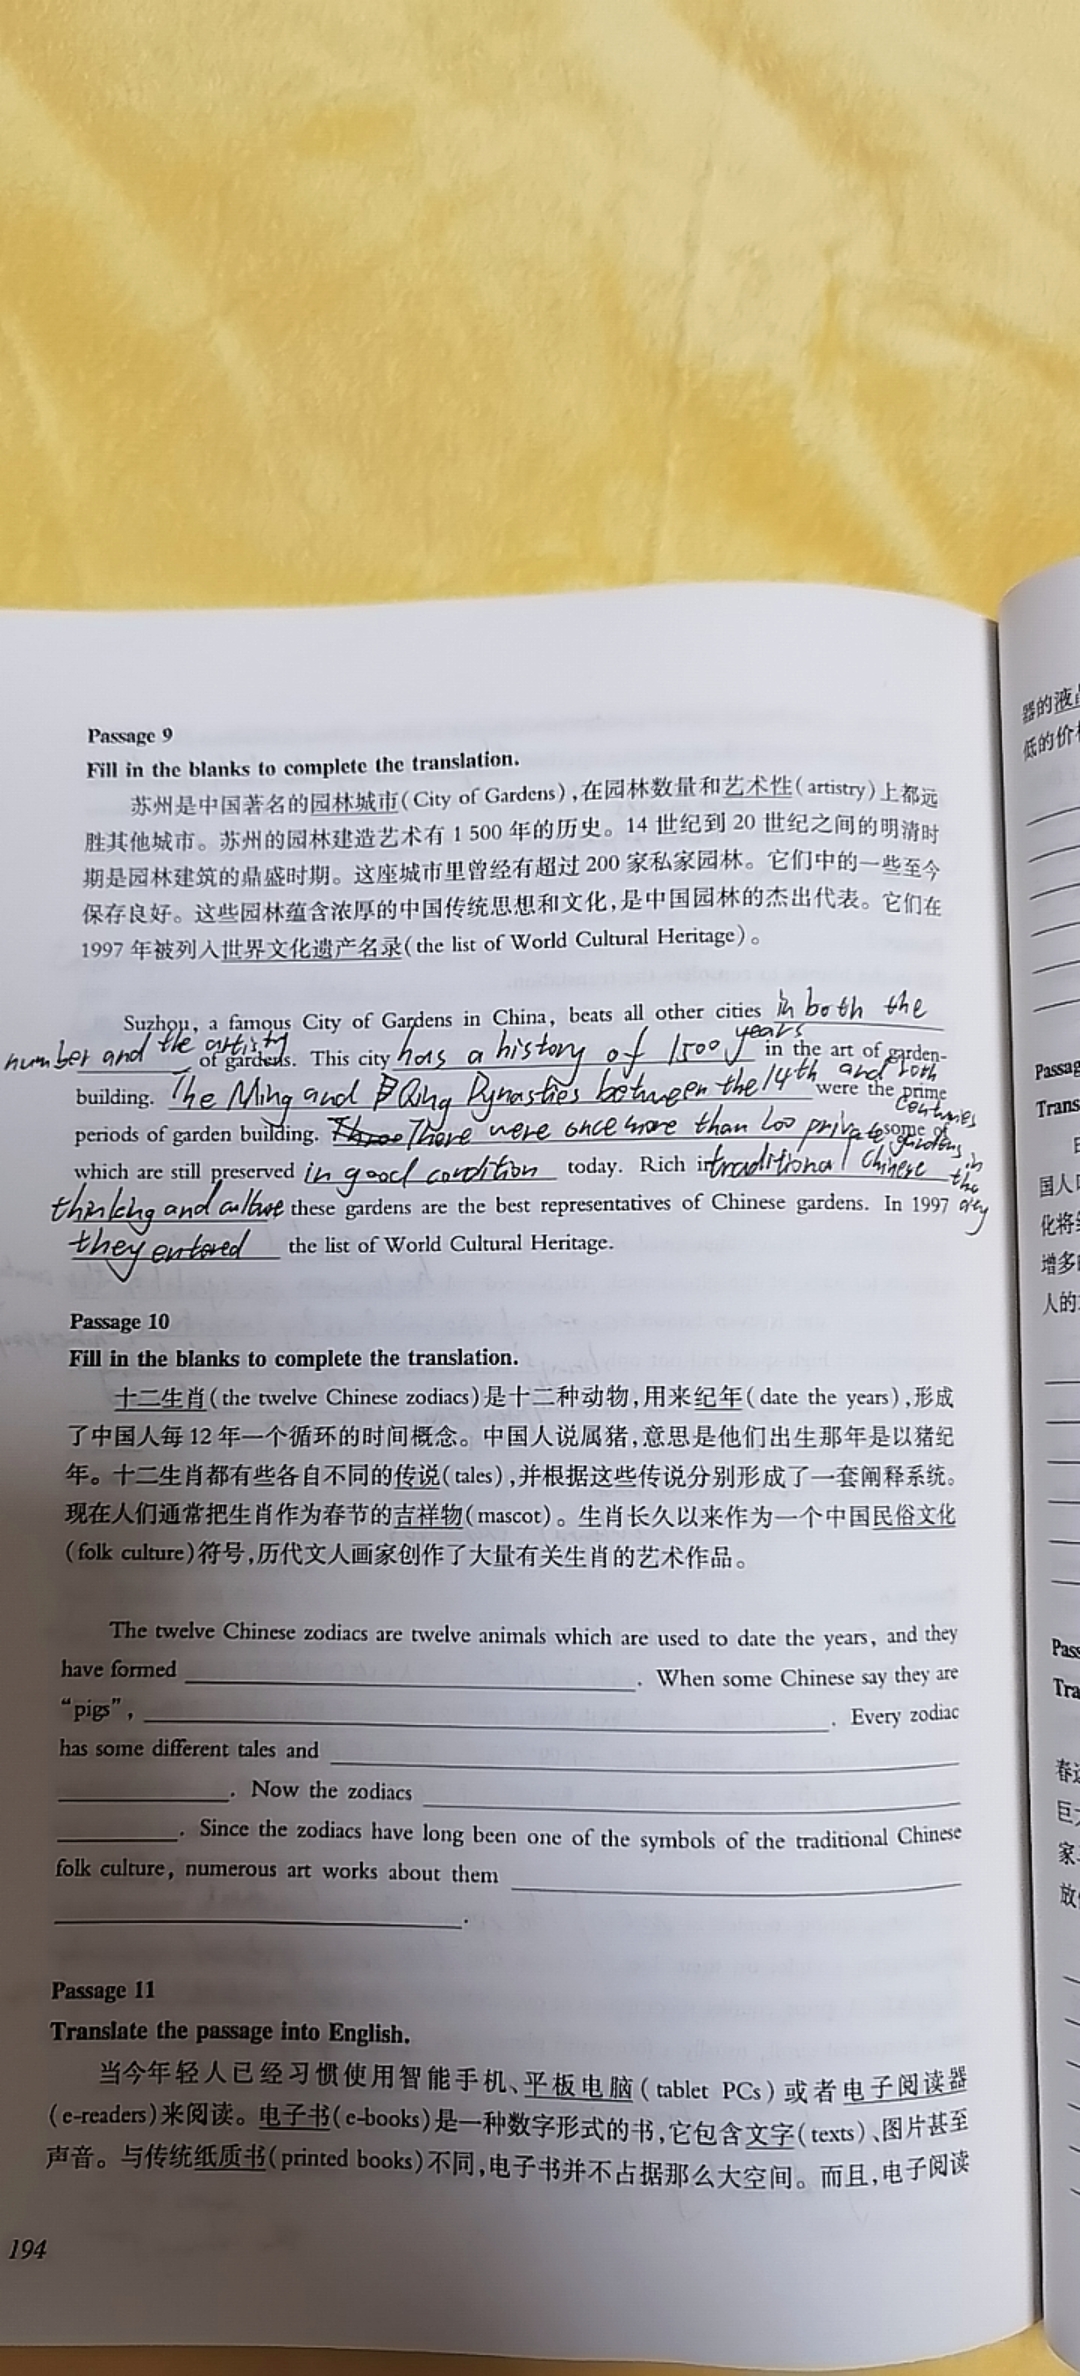 Passage 9
Fill in the blanks to complete the translation.
苏州是中国著名的园林城市(City of Gardens),在园林数量和艺术性(artistry)上都远
胜其他城市。苏州的园林建造艺术有 1 500 年的历史。14 世纪到 20 世纪之间的明清时
期是园林建筑的鼎盛时期。这座城市里曾经有超过 200 家私家园林。它们中的一些至今
保存良好。这些园林蕴含浓厚的中国传统思想和文化,是中国园林的杰出代表。它们在
1997 年被列入世界文化遗产名录(the list of World Cultural Heritage)。
Suzhou, a famous City of Gardens in China, beats all other cities in both the
number and the artisty of gardens. This city has a history of 1500 years in the art of garden-
building. The Ming and Qing Dynasties between the 14th and 20th centuries were the prime
periods of garden building. There were once more than 200 private gardens in the city some of
which are still preserved in good condition today. Rich in traditional Chinese
thinking and culture these gardens are the best representatives of Chinese gardens. In 1997
they entered the list of World Cultural Heritage.
Passage 10
Fill in the blanks to complete the translation.
十二生肖(the twelve Chinese zodiacs)是十二种动物,用来纪年(date the years),形成
了中国人每 12 年一个循环的时间概念。中国人说属猪,意思是他们出生那年是以猪纪
年。十二生肖都有些各自不同的传说(tales),并根据这些传说分别形成了一套阐释系统。
现在人们通常把生肖作为春节的吉祥物(mascot)。生肖长久以来作为一个中国民俗文化
(folk culture)符号,历代文人画家创作了大量有关生肖的艺术作品。
The twelve Chinese zodiacs are twelve animals which are used to date the years, and they
have formed . When some Chinese say they are
“pigs”, . Every zodiac
has some different tales and
. Now the zodiacs
. Since the zodiacs have long been one of the symbols of the traditional Chinese
folk culture, numerous art works about them
.
Passage 11
Translate the passage into English.
当今年轻人已经习惯使用智能手机、平板电脑(tablet PCs)或者电子阅读器
(e-readers)来阅读。电子书(e-books)是一种数字形式的书,它包含文字(texts)、图片甚至
声音。与传统纸质书(printed books)不同,电子书并不占据那么大空间。而且,电子阅读
194
器的液
低的价
Passag
Trans
国人
化将
增多
人的
Pass
Tra
春
巨
家
放